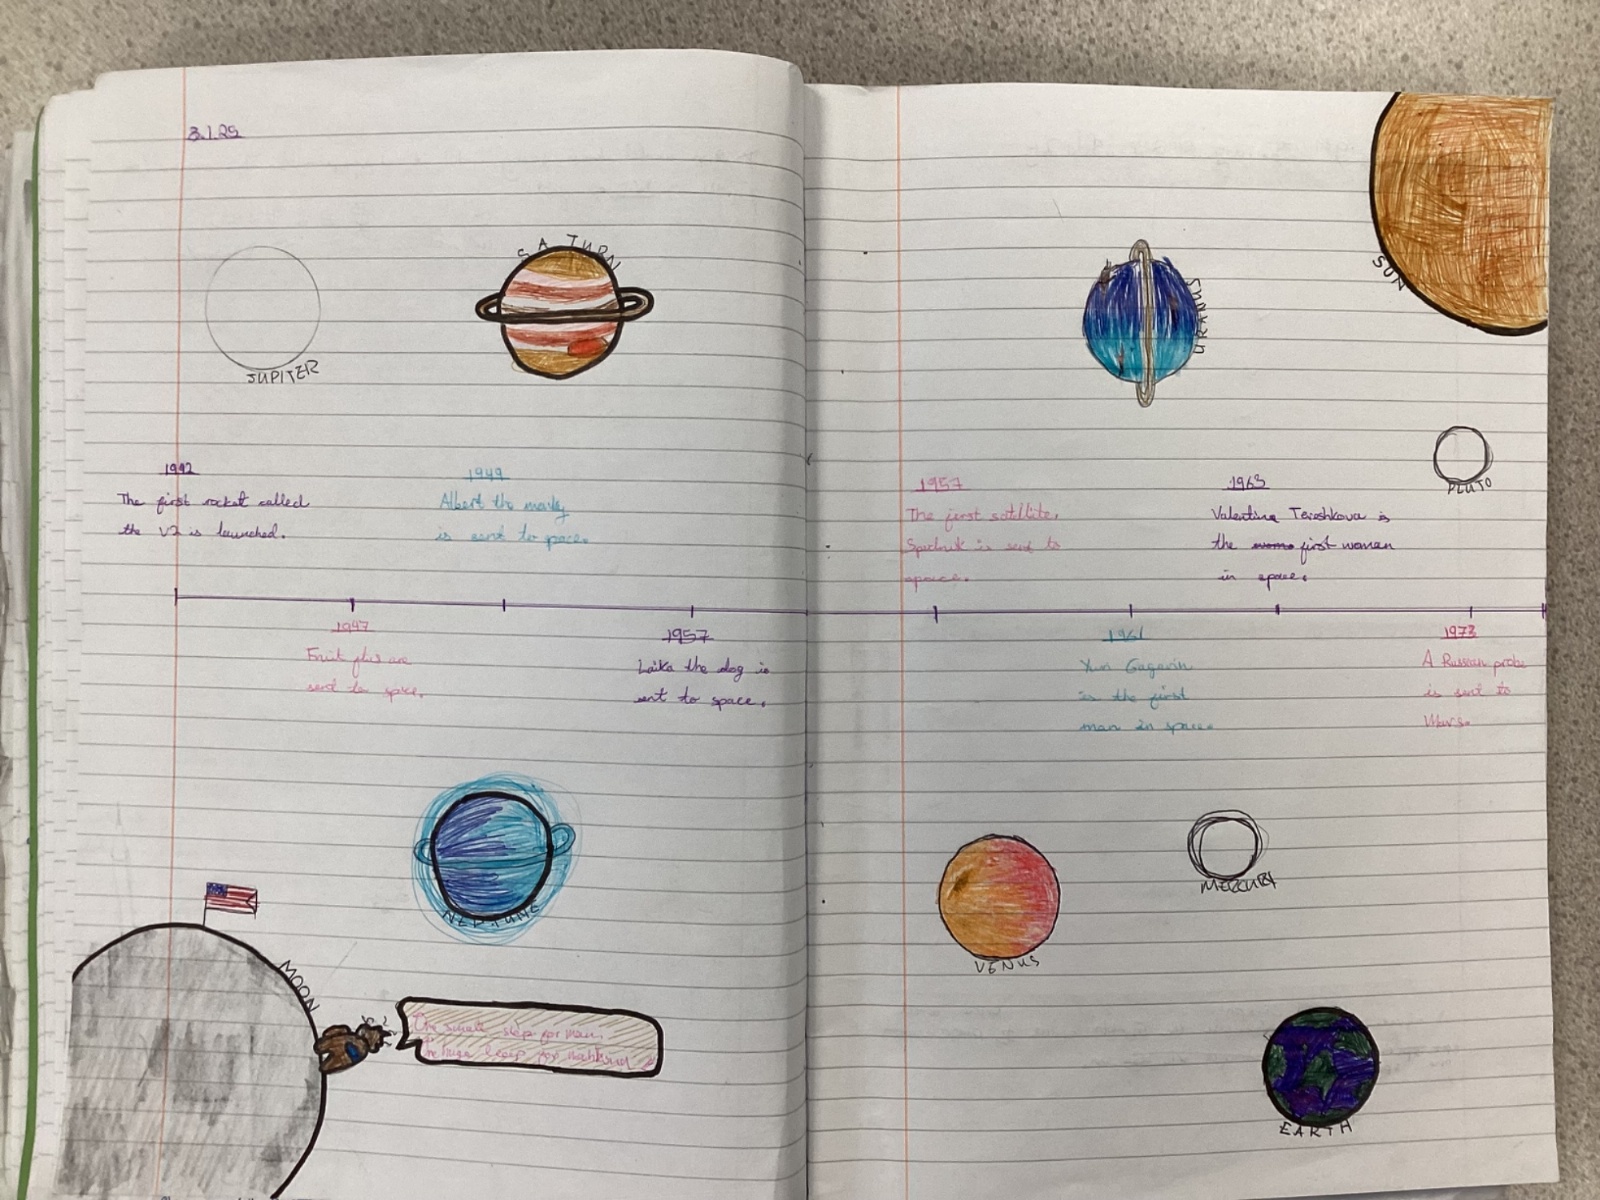 3.1.25
SATURN
JUPITER
URANUS
SUN
PLUTO
1942
The first rocket called
the V2 is launched.
1949
Albert the
is sent to space.
1957
The first satellite.
Sputnik is sent to
space.
1963
Valentina Tereshkova is
the first woman
in space.
1947
Fruit flies are
sent to space.
1957
Laika the dog is
sent to space.
1961
Yuri Gagarin
is the first
man in space.
1973
A Russian probe
is sent to
Mars.
NEPTUNE
MOON
One small step for man.
One huge leap for mankind
VENUS
MERCURY
EARTH